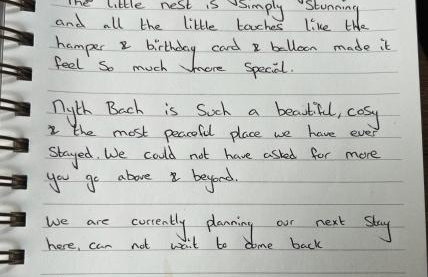 The little nest is simply stunning
and all the little touches like the
hamper & birthday card & balloon made it
feel so much more special.
Nyth Bach is such a beautiful, cosy
& the most peaceful place we have ever
stayed. We could not have asked for more
you go above & beyond.
We are currently planning our next stay
here, can not wait to come back